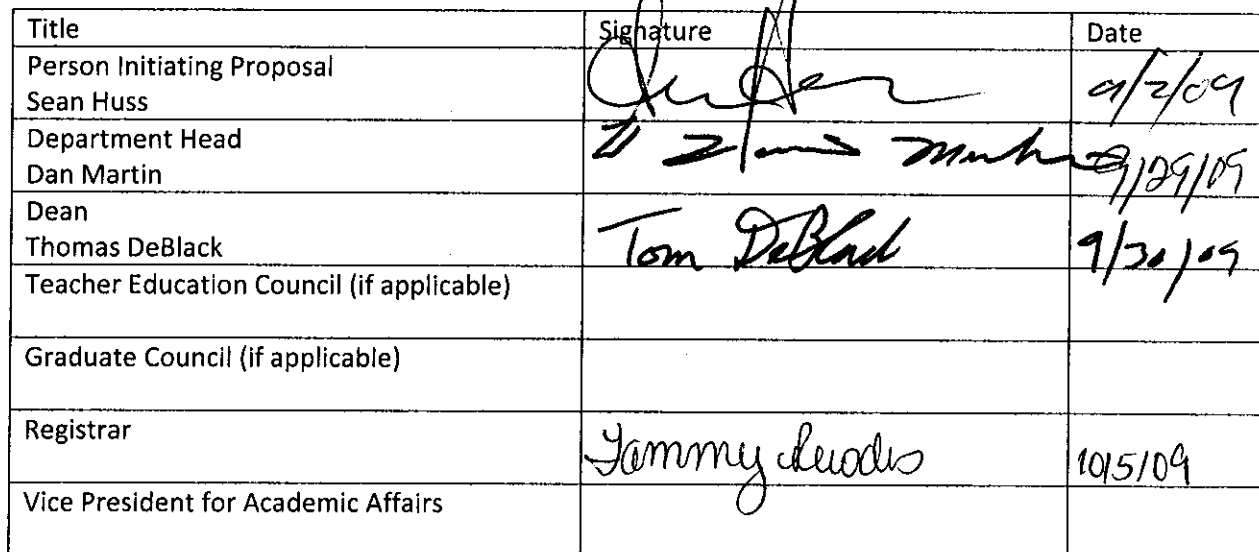 Title Signature Date
Person Initiating Proposal
Sean Huss 9/2/09
Department Head
Dan Martin 9/29/09
Dean
Thomas DeBlack Tom DeBlack 9/30/09
Teacher Education Council (if applicable)
Graduate Council (if applicable)
Registrar
Tammy Rhodes 10/5/09
Vice President for Academic Affairs